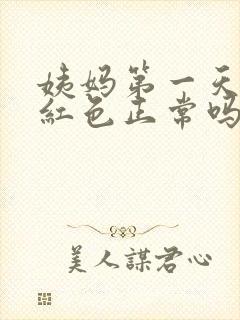 姨妈第一天
红色正常吗
美人謀君心